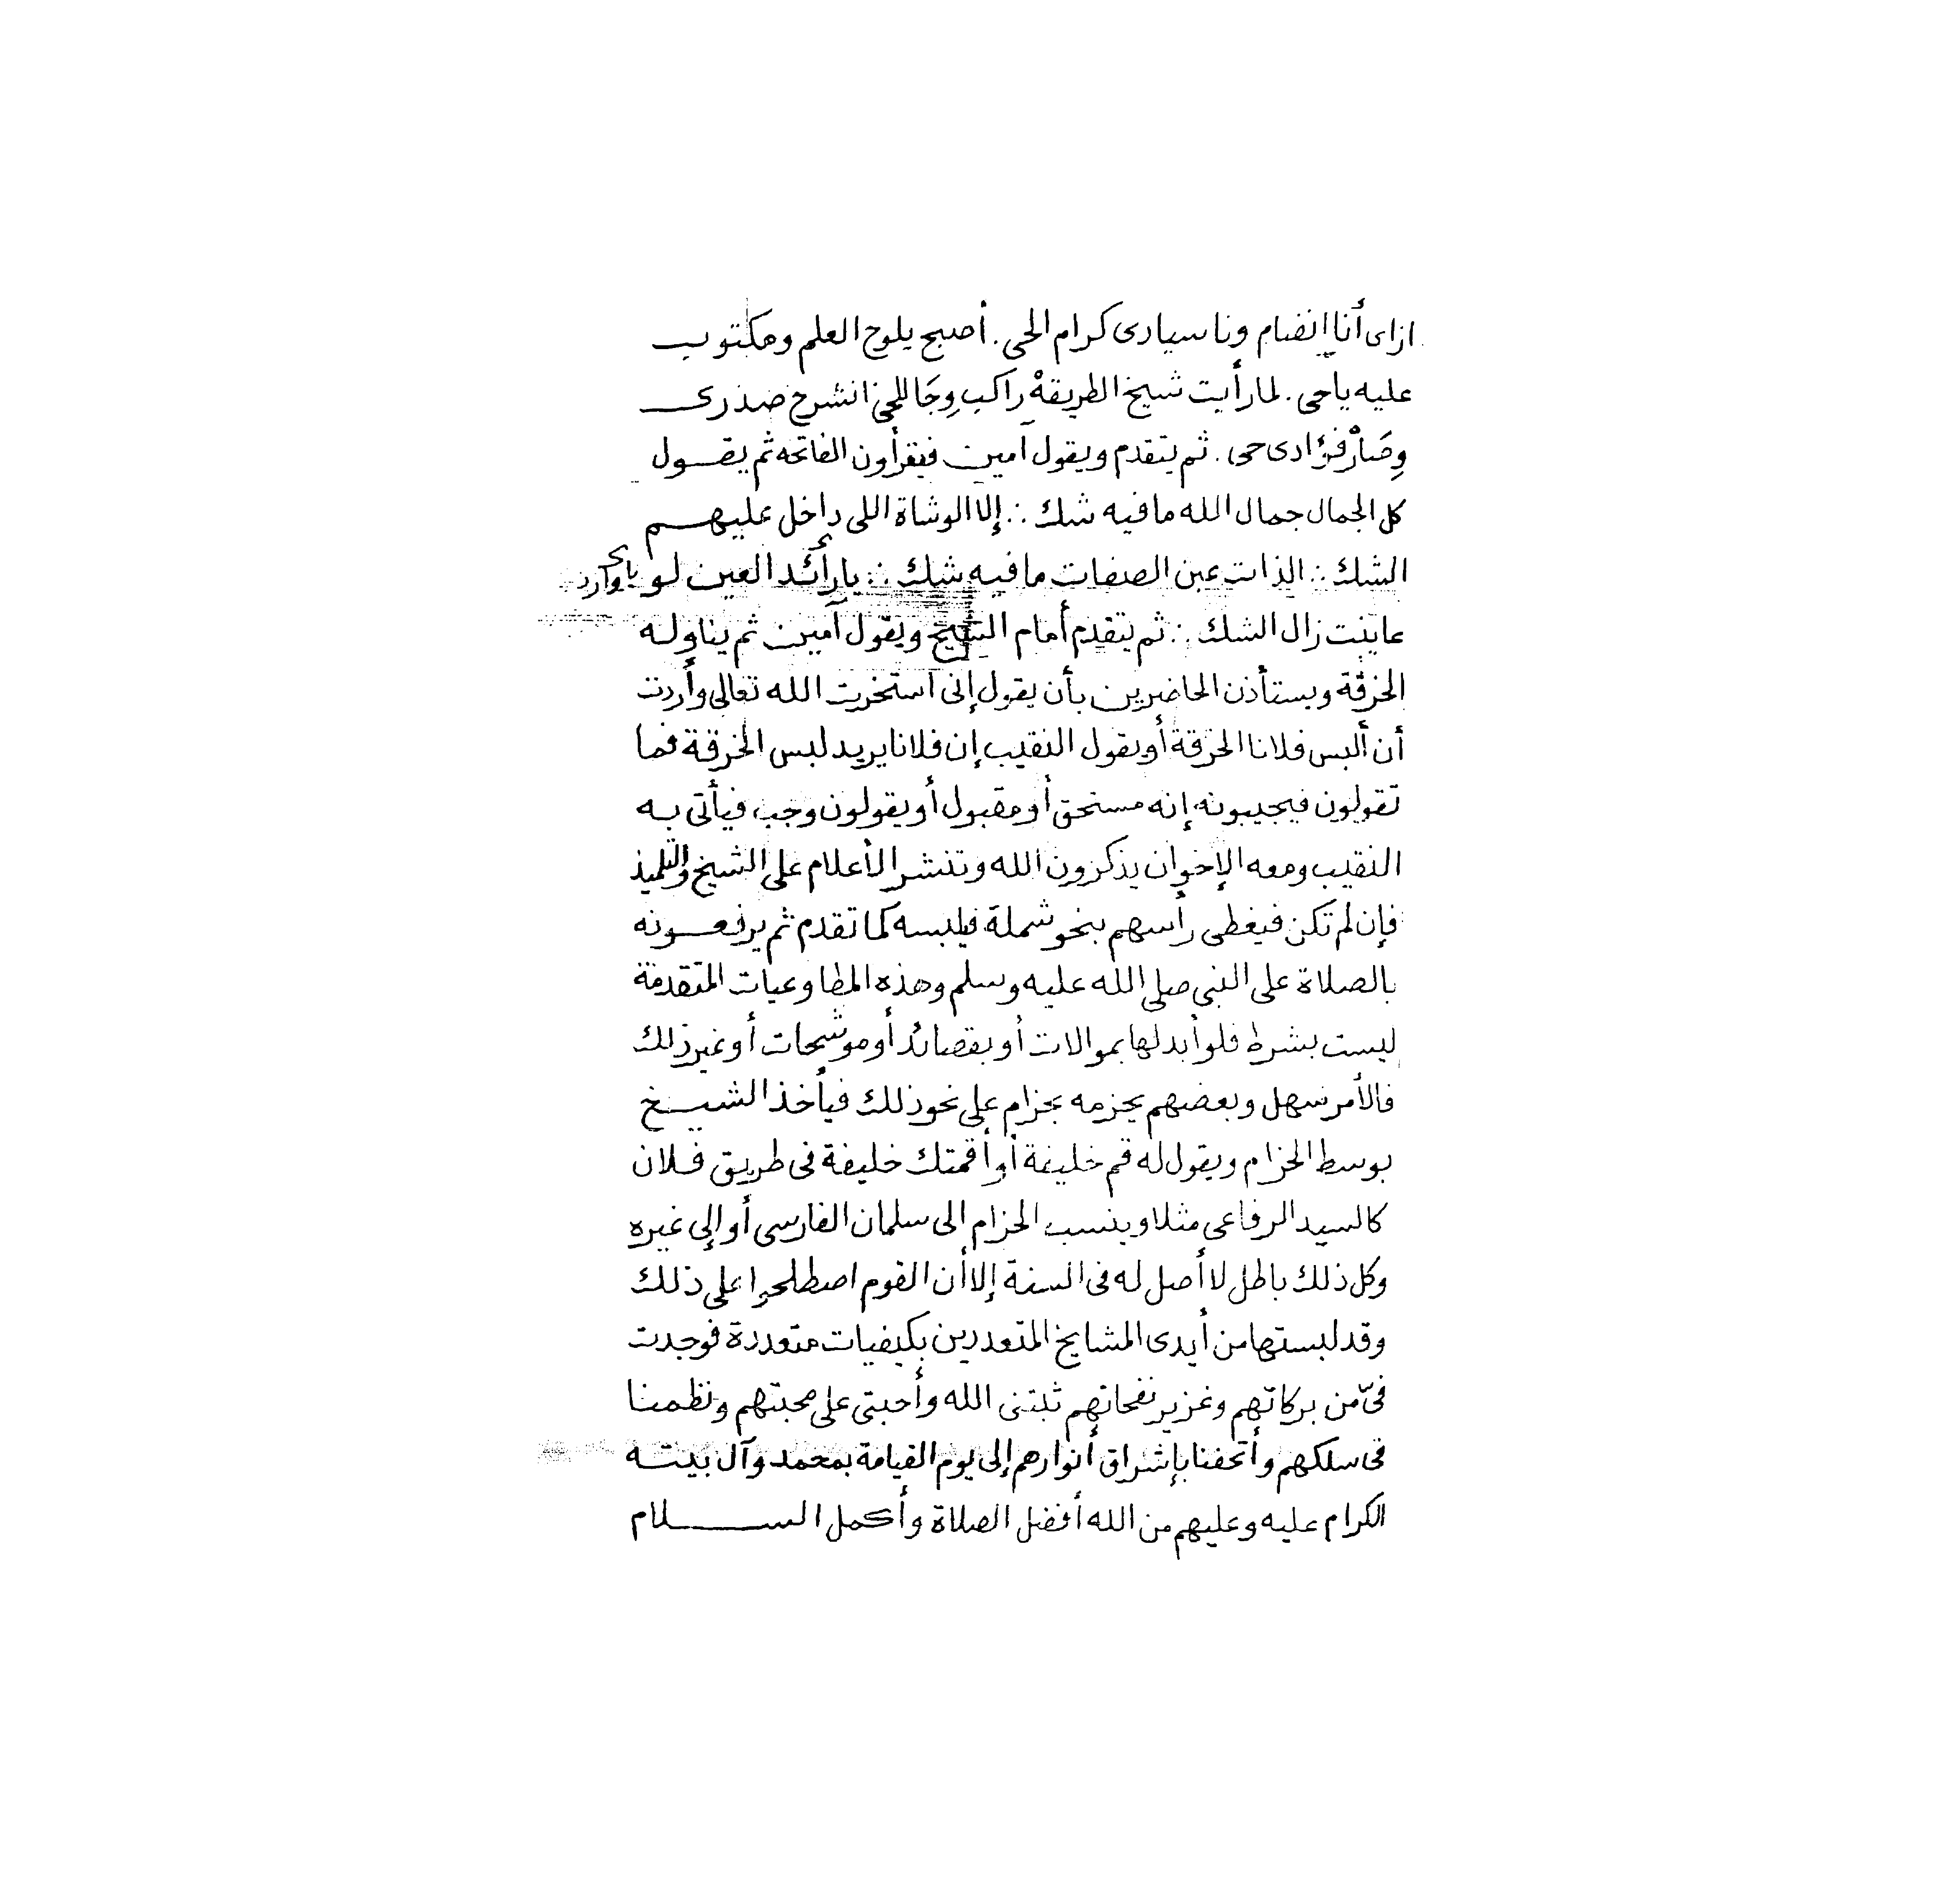 ازاى أنا إنضام ونا سيادى كرام الحى . أصبح يلوح العلم ومكتوب
عليه ياحى . لما رأيت شيخ الطريقهْ راكب وِجَا للحى انشرح صدرى
وِصَارْ فؤادى حى . ثم يتقدم ويقول آمين فيقرأون الفاتحه ثم يقول
كل الجمال جمال الله ما فيه شك ∴ إلا الوشاة اللى داخل عليهم
الشك ∴ الذات عين الصفات ما فيه شك ∴ يا رائد العين لو
عاينت زال الشك ∴ ثم يتقدم أمام الشيخ ويقول آمين ثم يناوله
الخرقة ويستأذن الحاضرين بأن يقول إنى استخرت الله تعالى وأردت
أن ألبس فلانا الخرقة أو يقول النقيب إن فلانا يريد لبس الخرقة فما
تقولون فيجيبونه إنه مستحق أو مقبول أو يقولون وجب فيأتى به
النقيب ومعه الإخوان يذكرون الله وتنشر الأعلام على الشيخ والتلميذ
فإن لم تكن فيغطى رأسهم بنحو شملة فيلبسه كما تقدم ثم يرفعونه
بالصلاة على النبى صلى الله عليه وسلم وهذه المطاوعيات المتقدمة
ليست بشرط فلو أبدلها بموالات أو بقصائد أو موشحات أو غير ذلك
فالأمر سهل وبعضهم يحزمه بحزام على نحو ذلك فيأخذ الشيخ
بوسط الحزام ويقول له قم خليفة أو أقمتك خليفة فى طريق فلان
كالسيد الرفاعى مثلا وينسب الحزام الى سلمان الفارسى أو إلى غيره
وكل ذلك باطل لا أصل له فى السنة إلا أن القوم اصطلحوا على ذلك
وقد لبستها من أيدى المشايخ المتعددين بكيفيات متعددة فوجدت
فىّ من بركاتهم وغزير نفحاتهم ثبتنى الله وأحبتى على محبتهم ونظمنا
فى سلكهم وأتحفنا بإشراق أنوارهم إلى يوم القيامة بمحمد وآل بيته
الكرام عليه وعليهم من الله أفضل الصلاة وأكمل السلام